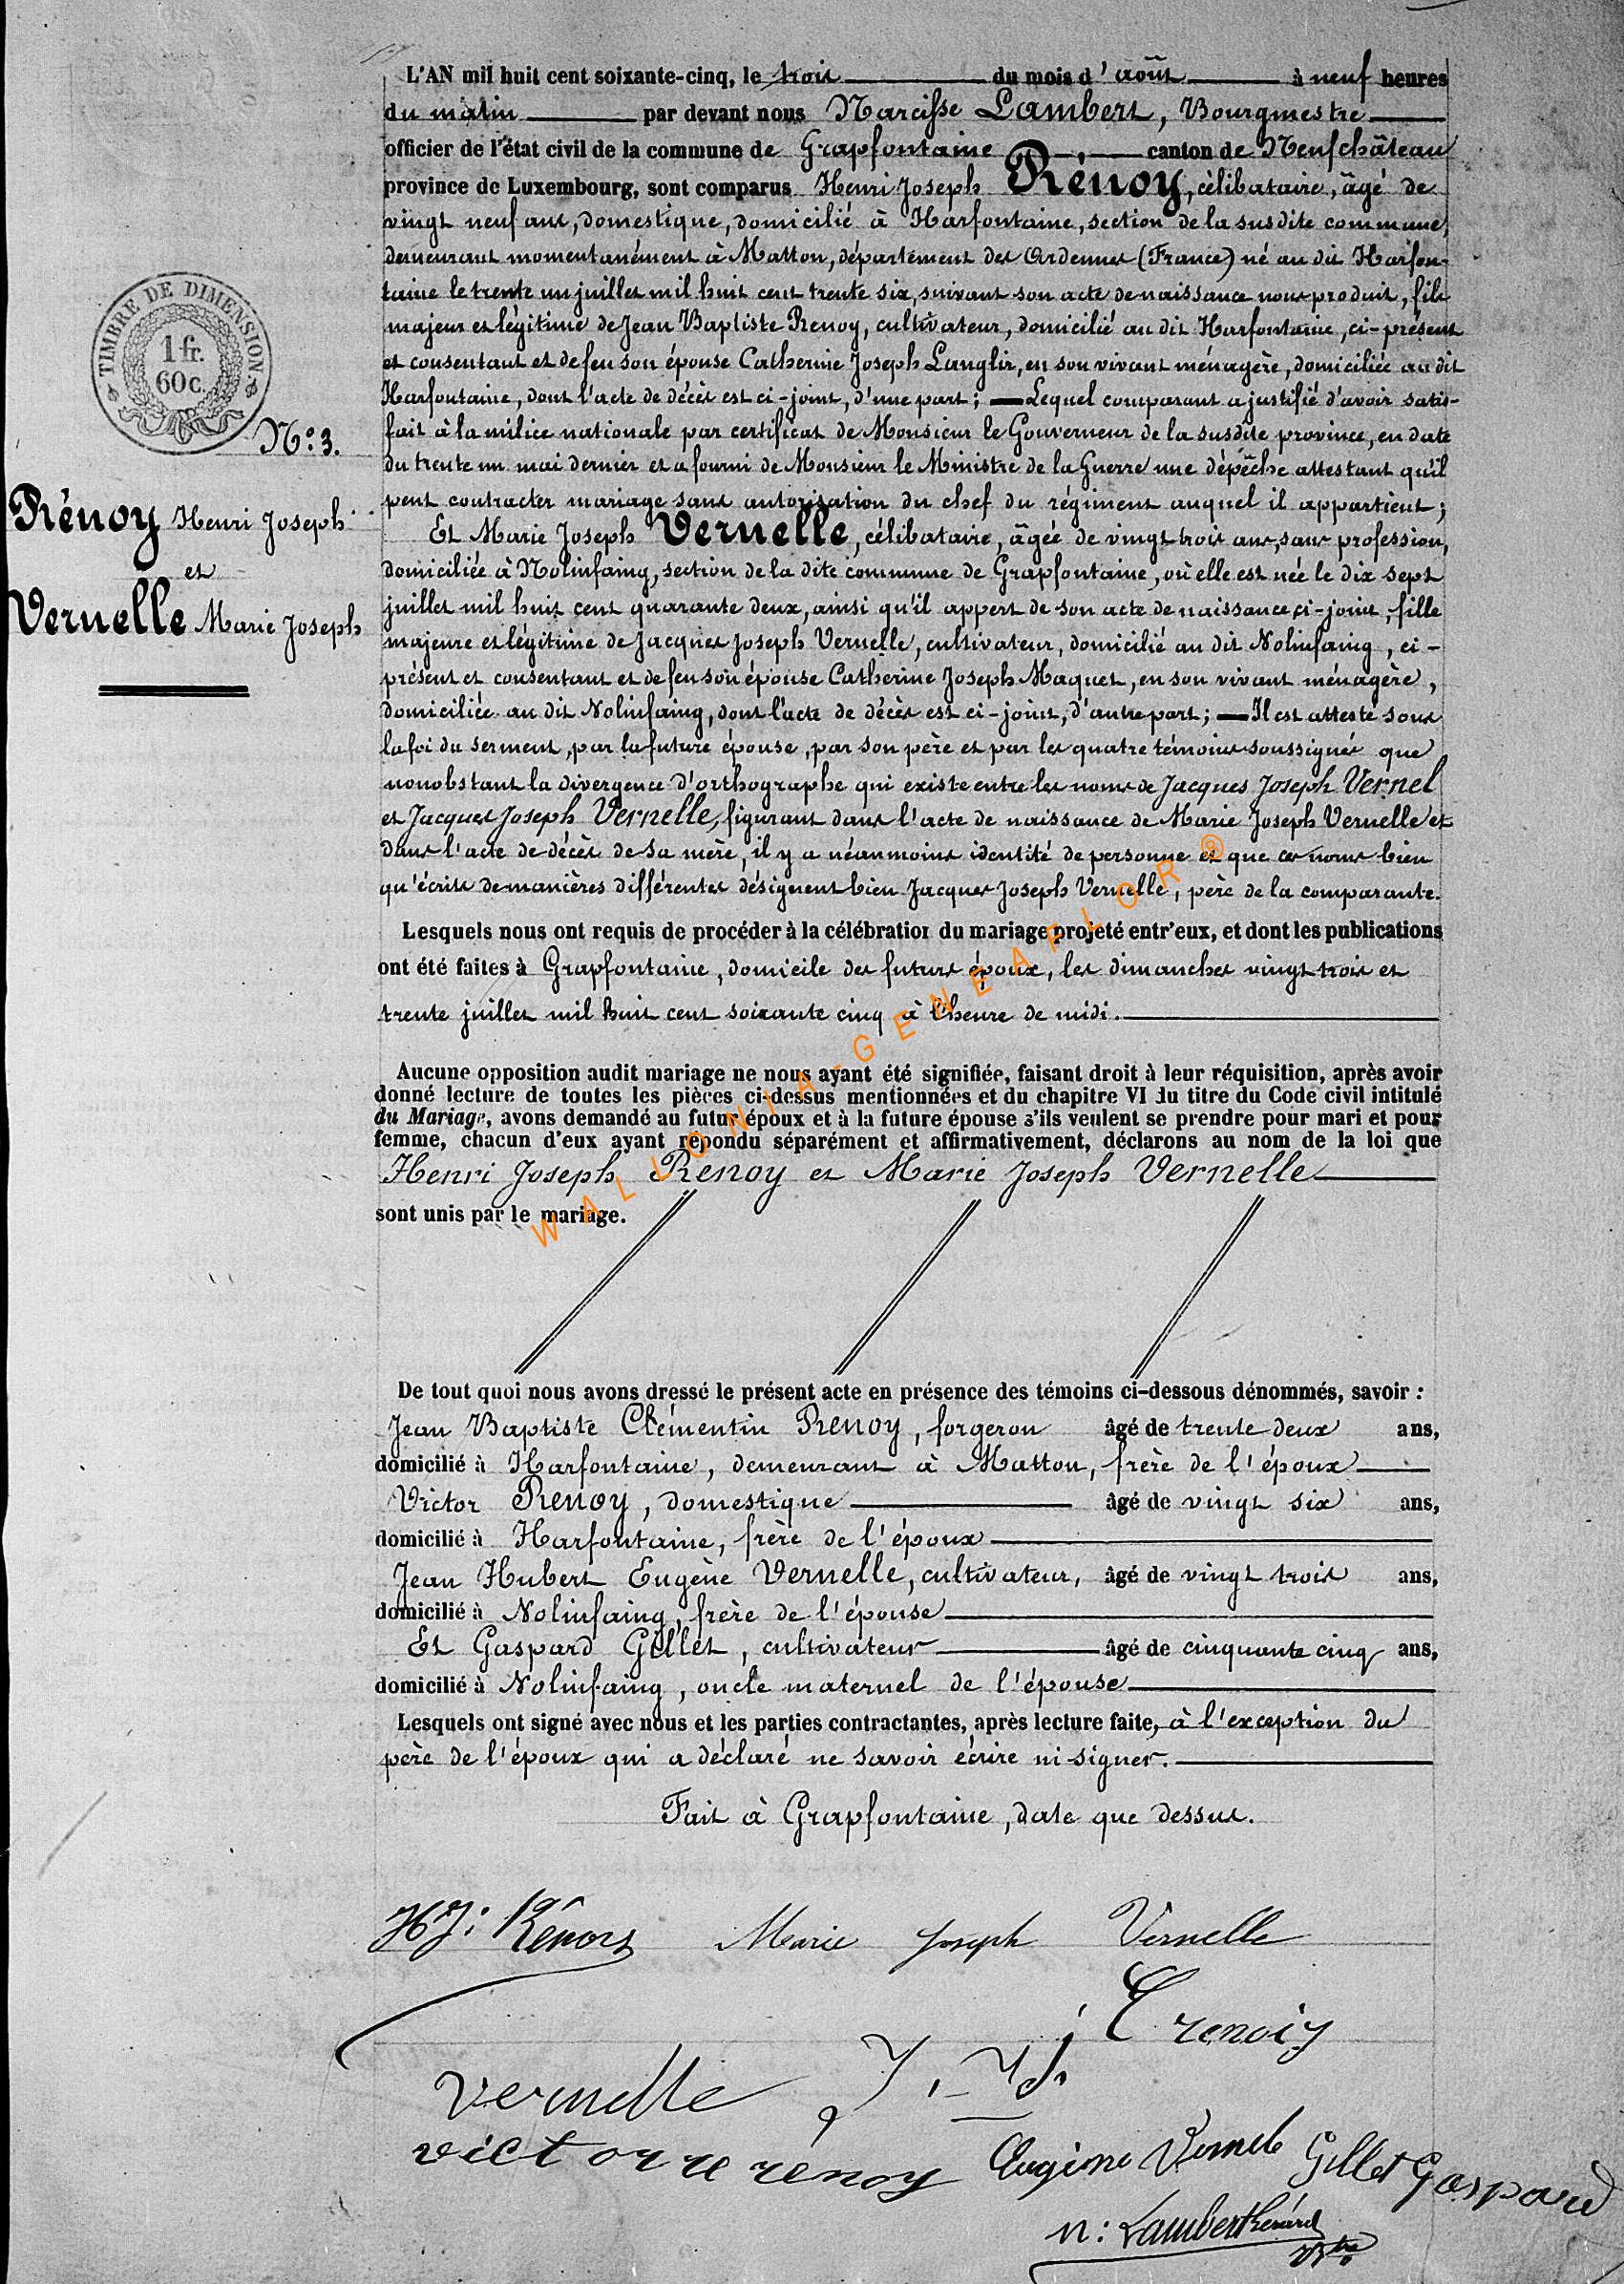 L'AN mil huit cent soixante-cinq, le trois du mois d'août à neuf heures
du matin par devant nous Narcisse Lambert, Bourgmestre
officier de l'état civil de la commune de Grapfontaine canton de Neufchâteau
province de Luxembourg, sont comparus Henri Joseph Rénoy, célibataire, âgé de
vingt neuf ans, domestique, domicilié à Harfontaine, section de la susdite commune,
demeurant momentanément à Matton, département des Ardennes (France) né au dit Harfon-
taine le trente un juillet mil huit cent trente six, suivant son acte de naissance nous produit, fils
majeur et légitime de Jean Baptiste Renoy, cultivateur, domicilié au dit Harfontaine, ci-présent
et consentant et de feu son épouse Catherine Joseph Langlir, en son vivant ménagère, domiciliée au dit
Harfontaine, dont l'acte de décès est ci-joint, d'une part; — Lequel comparant a justifié d'avoir satis-
fait à la milice nationale par certificat de Monsieur le Gouverneur de la susdite province, en date
du trente un mai dernier et a fourni de Monsieur le Ministre de la Guerre une dépêche attestant qu'il
peut contracter mariage sans autorisation du chef du régiment auquel il appartient;
Et Marie Joseph Vernelle, célibataire, âgée de vingt trois ans, sans profession,
domiciliée à Nolinfaing, section de la dite commune de Grapfontaine, où elle est née le dix sept
juillet mil huit cent quarante deux, ainsi qu'il appert de son acte de naissance ci-joint, fille
majeure et légitime de Jacques Joseph Vernelle, cultivateur, domicilié au dit Nolinfaing, ci-
présent et consentant et de feu son épouse Catherine Joseph Maquet, en son vivant ménagère,
domiciliée au dit Nolinfaing, dont l'acte de décès est ci-joint, d'autre part; — Il est attesté sous
la foi du serment, par la future épouse, par son père et par les quatre témoins soussignés que
nonobstant la divergence d'orthographe qui existe entre les noms de Jacques Joseph Vernel
et Jacques Joseph Vernelle, figurant dans l'acte de naissance de Marie Joseph Vernelle et
dans l'acte de décès de sa mère, il y a néanmoins identité de personne et que ces noms bien
qu'écrits de manières différentes désignent bien Jacques Joseph Vernelle, père de la comparante.
Lesquels nous ont requis de procéder à la célébration du mariage projeté entr'eux, et dont les publications
ont été faites à Grapfontaine, domicile des futurs époux, les dimanches vingt trois et
trente juillet mil huit cent soixante cinq à l'heure de midi.
Aucune opposition audit mariage ne nous ayant été signifiée, faisant droit à leur réquisition, après avoir
donné lecture de toutes les pièces ci-dessus mentionnées et du chapitre VI du titre du Code civil intitulé
du Mariage, avons demandé au futur époux et à la future épouse s'ils veulent se prendre pour mari et pour
femme, chacun d'eux ayant répondu séparément et affirmativement, déclarons au nom de la loi que
Henri Joseph Renoy et Marie Joseph Vernelle
sont unis par le mariage.
De tout quoi nous avons dressé le présent acte en présence des témoins ci-dessous dénommés, savoir :
Jean Baptiste Clémentin Renoy, forgeron âgé de trente deux ans,
domicilié à Harfontaine, demeurant à Matton, frère de l'époux
Victor Renoy, domestique âgé de vingt six ans,
domicilié à Harfontaine, frère de l'époux
Jean Hubert Eugène Vernelle, cultivateur, âgé de vingt trois ans,
domicilié à Nolinfaing, frère de l'épouse
Et Gaspard Gillet, cultivateur âgé de cinquante cinq ans,
domicilié à Nolinfaing, oncle maternel de l'épouse
Lesquels ont signé avec nous et les parties contractantes, après lecture faite, à l'exception du
père de l'époux qui a déclaré ne savoir écrire ni signer.
Fait à Grapfontaine, date que dessus.
TIMBRE DE DIMENSION
1 fr.
60 c.
N° 3.
Rénoy Henri Joseph
et
Vernelle Marie Joseph
H J: Rénoy Marie Joseph Vernelle
C renoiy
vernelle J. J.
victor renoy Eugène Vernele Gillet Gaspard
N: Lambert Gérard
Btre
WALLONIA-GENEAFLOR ®